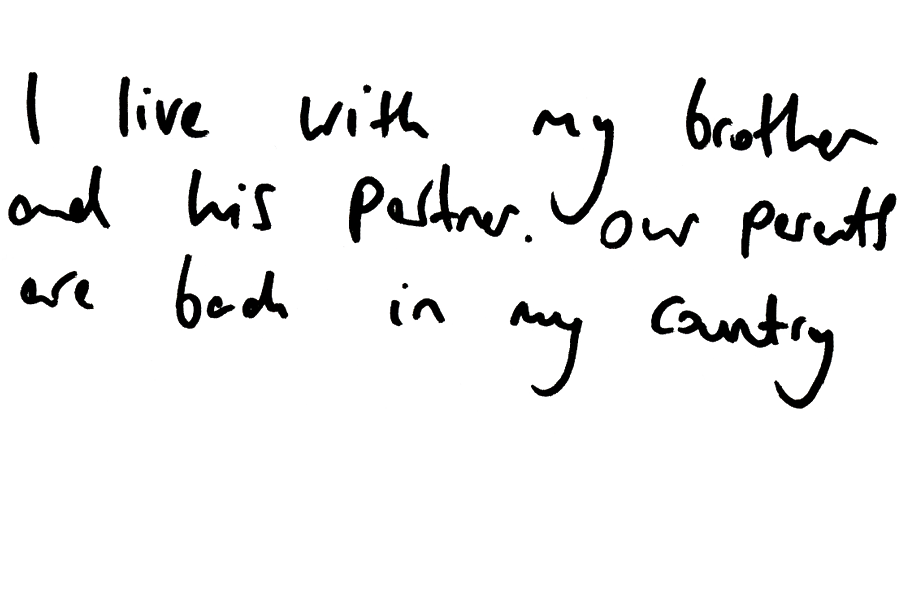 I live with my brother
and his partner. Our parents
are back in my country